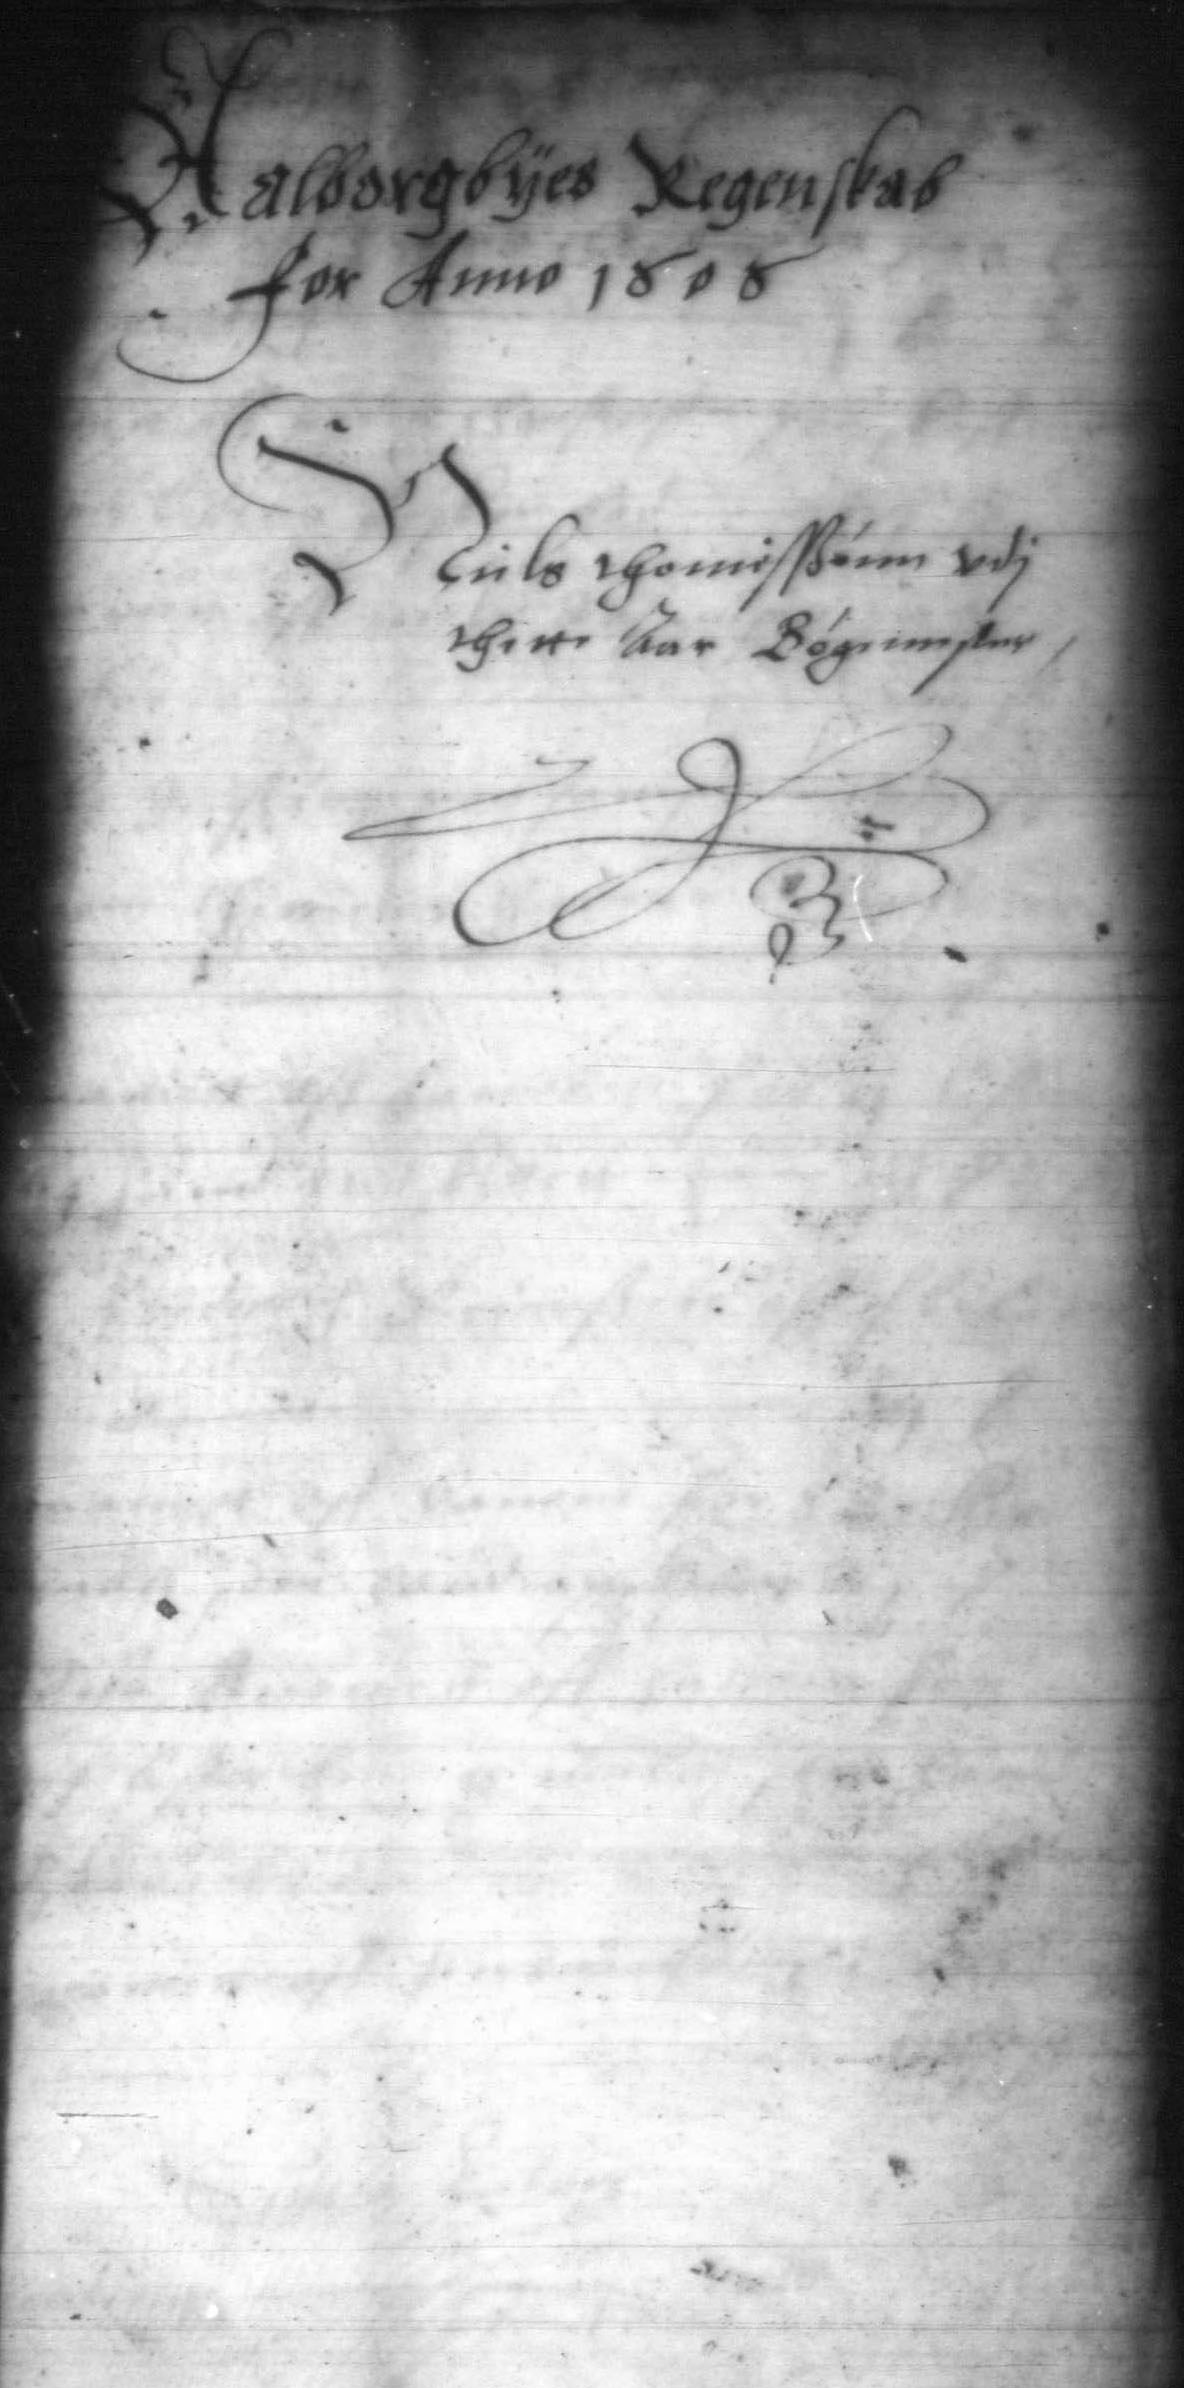 Aalborgbÿes Regenskab
for Anno 1608
Niels Thomessønn vdj
thette Aar Bøgemester